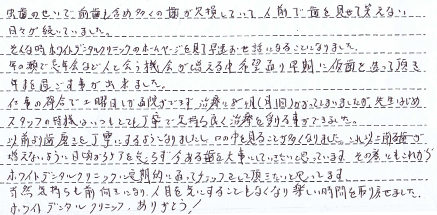 虫歯のせいで前歯も含め多くの歯が欠損していて人前で歯を見せて笑えない
日々が続いていました。
そんな時ホワイトデンタルクリニックのホームページを見て早速お世話になることになりました。
年の瀬で忘年会など人と会う機会が増える中希望通り早期に仮歯を造って頂き
年を過ごす事が出来ました。
仕事の都合で土曜日しか通院ができず治療に8ヶ月(月1回)かかってしまいましたが先生はじめ
スタッフの皆様はいつもとても丁寧で気持ち良く治療を創る事ができました。
以前より歯磨きを丁寧にするようになりましたし口の中を見ることが多くなりました。これ以上
増えないように日頃からケアを怠らず今ある歯を大事にしていきたいと思っています。その為にもこれからも
ホワイトデンタルクリニックに定期的に通ってチェックをして頂きたいと思ってます。
自然気持ちも前向きになり人目を気にすることもなくなり楽しい時間を取り戻せました。
ホワイトデンタルクリニック、ありがとう!